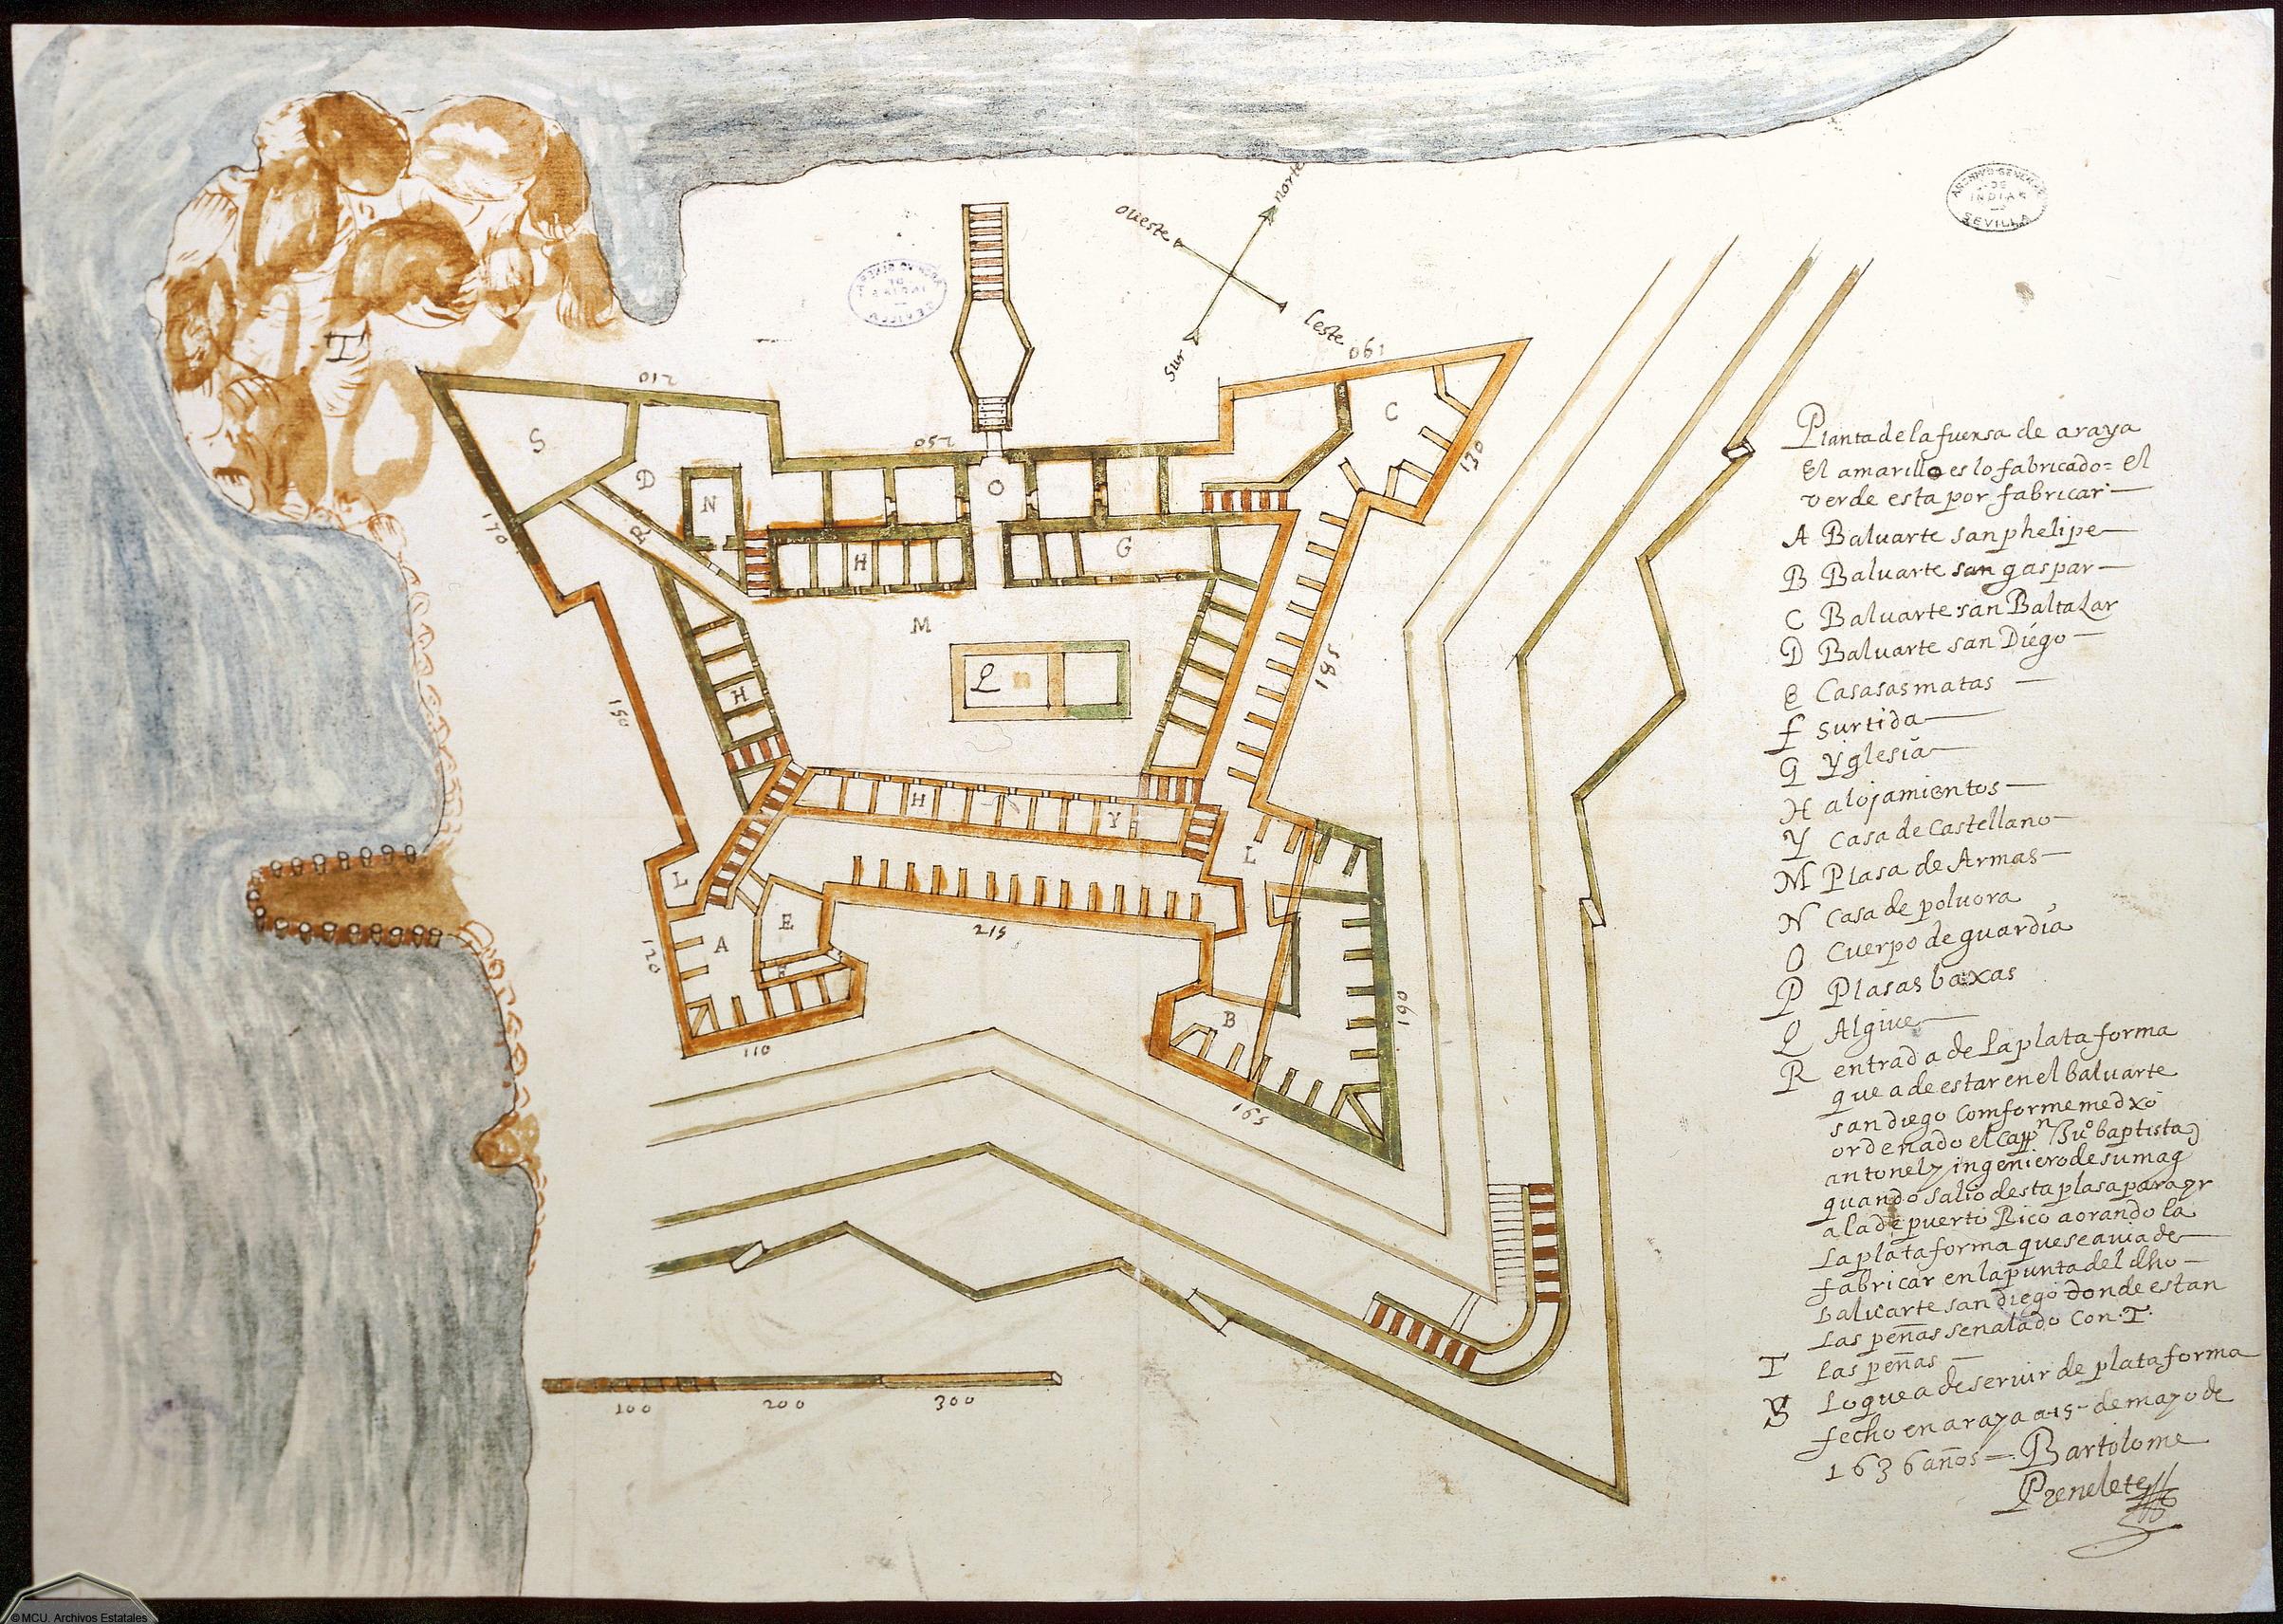 norte
oueste
leste
sur
I
210
190
S
D
C
250
130
N
O
170
R
H
G
M
185
L
H
150
H
Y
L
L
E
A
215
120
F
190
B
110
165
100 200 300
ARCHIVO GENERAL
DE
INDIAS
SEVILLA
Planta de la fuersa de araya
El amarillo es lo fabricado = el
verde esta por fabricar
A Baluarte san phelipe
B Baluarte san gaspar
C Baluarte san Baltasar
D Baluarte san Diego
E Casasasmatas
f surtida
G Yglesia
H alojamientos
Y Casa de Castellano
M Plasa de Armas
N Casa de poluora
O Cuerpo de guardia
P Plasas baxas
L Algiue
R entrada de la plataforma
que a de estar en el baluarte
san diego Comforme me dxo
ordenado el Cappn Juo baptista
antonely ingeniero de su mag
quando salio desta plasa para yr
a la de puerto Rico aorando la
la plataforma que se auia de
fabricar en la punta del dho
baluarte san diego donde estan
las peñas señalado Con. I.
I las peñas
S lo que a de seruir de plataforma
fecho en araya a 15 de mayo de
1636 años = Bartolome
Prenelete
© MCU. Archivos Estatales